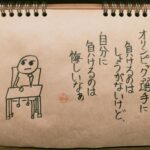 オリンピック選手に
負けるのは
しょうがないけど、
自分に
負けるのは
悔しいなぁ